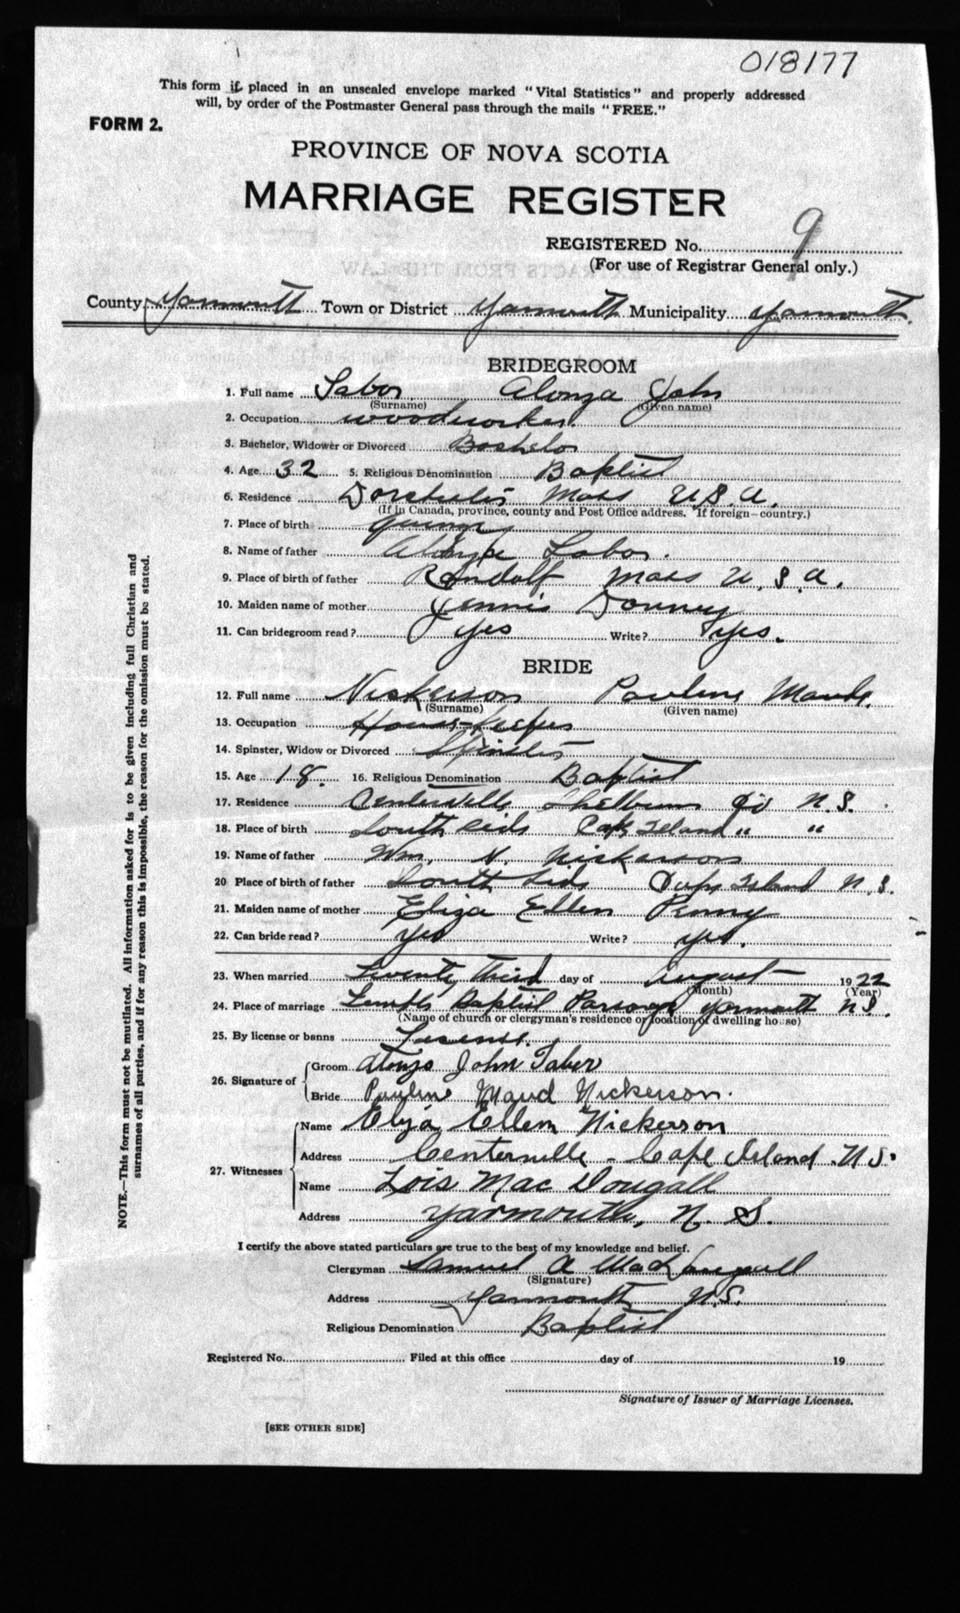 018177
This form if placed in an unsealed envelope marked "Vital Statistics" and properly addressed
will, by order of the Postmaster General pass through the mails "FREE."
FORM 2.
PROVINCE OF NOVA SCOTIA
MARRIAGE REGISTER
REGISTERED No. 9
(For use of Registrar General only.)
County Yarmouth Town or District Yarmouth Municipality Yarmouth.
BRIDEGROOM
1. Full name Tabor Alonza John
(Surname) (Given name)
2. Occupation woodworker.
3. Bachelor, Widower or Divorced Bachelor
4. Age 32 5. Religious Denomination Baptist
6. Residence Dorchester Mass U.S.A.
(If in Canada, province, county and Post Office address. If foreign—country.)
7. Place of birth Quincy
8. Name of father Alonza Tabor.
9. Place of birth of father Randolf Mass U.S.A.
10. Maiden name of mother Jennie
11. Can bridegroom read? yes Write? yes.
BRIDE
12. Full name Nickerson Pauline Maude.
(Surname) (Given name)
13. Occupation House-Keeper
14. Spinster, Widow or Divorced Spinster
15. Age 18. 16. Religious Denomination Baptist
17. Residence Centerville Shelburne Co N.S.
18. Place of birth South Side Cape Island " "
19. Name of father Wm. N. Nickerson
20 Place of birth of father South Side Cape Island N.S.
21. Maiden name of mother Eliza Ellen Penny
22. Can bride read? yes Write? yes.
23. When married Twenty Third day of August 1922
(Month) (Year)
24. Place of marriage Temple Baptist Parsonage Yarmouth N.S.
(Name of church or clergyman's residence or location of dwelling house)
25. By license or banns License.
26. Signature of
Groom Alonzo John Taber
Bride Pauline Maud Nickerson.
27. Witnesses
Name Eliza Ellen Nickerson
Address Centerville - Cape Island. N.S.
Name Lois MacDougall
Address Yarmouth, N.S.
I certify the above stated particulars are true to the best of my knowledge and belief.
Clergyman Samuel A MacDougall
(Signature)
Address Yarmouth N.S.
Religious Denomination Baptist
Registered No. Filed at this office day of 19
Signature of Issuer of Marriage Licenses.
[SEE OTHER SIDE]
NOTE.—This form must not be mutilated. All information asked for is to be given including full Christian and
surnames of all parties, and if for any reason this is impossible, the reason for the omission must be stated.